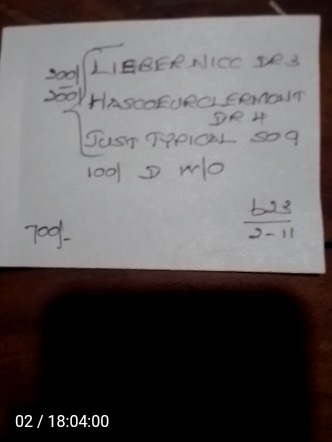 200/ LIEBERNICC DR 3
200/ HASCOEURCLERMONT
DR 4
JUST TYPICAL SO 9
100/ D W/O
700/-
623
2-11
02 / 18:04:00